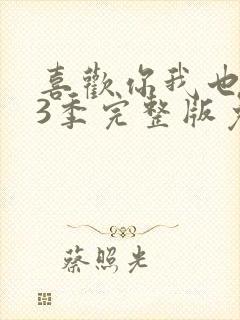 喜歡你我也
3季完整版
蔡照光